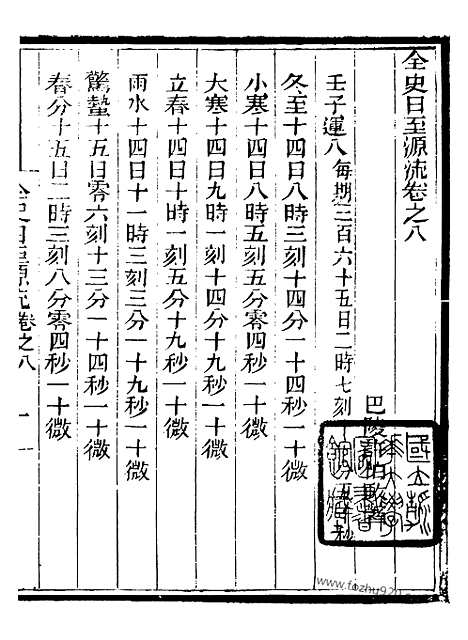 全史日至源流卷之八
巴陵
壬子運八每期三百六十五日二時七刻
冬至十四日八時三刻十四分一十秒一十微
小寒十四日八時五刻五分零四秒一十微
大寒十四日九時一刻十四分一十四秒一十微
立春十四日十時一刻五分十九秒一十微
雨水十四日十一時三刻三分一十九秒一十微
驚蟄十五日零六刻十三分一十四秒一十微
春分十五日二時三刻八分零四秒一十微
全史日至源流卷之八 一
www.fozhu920.com